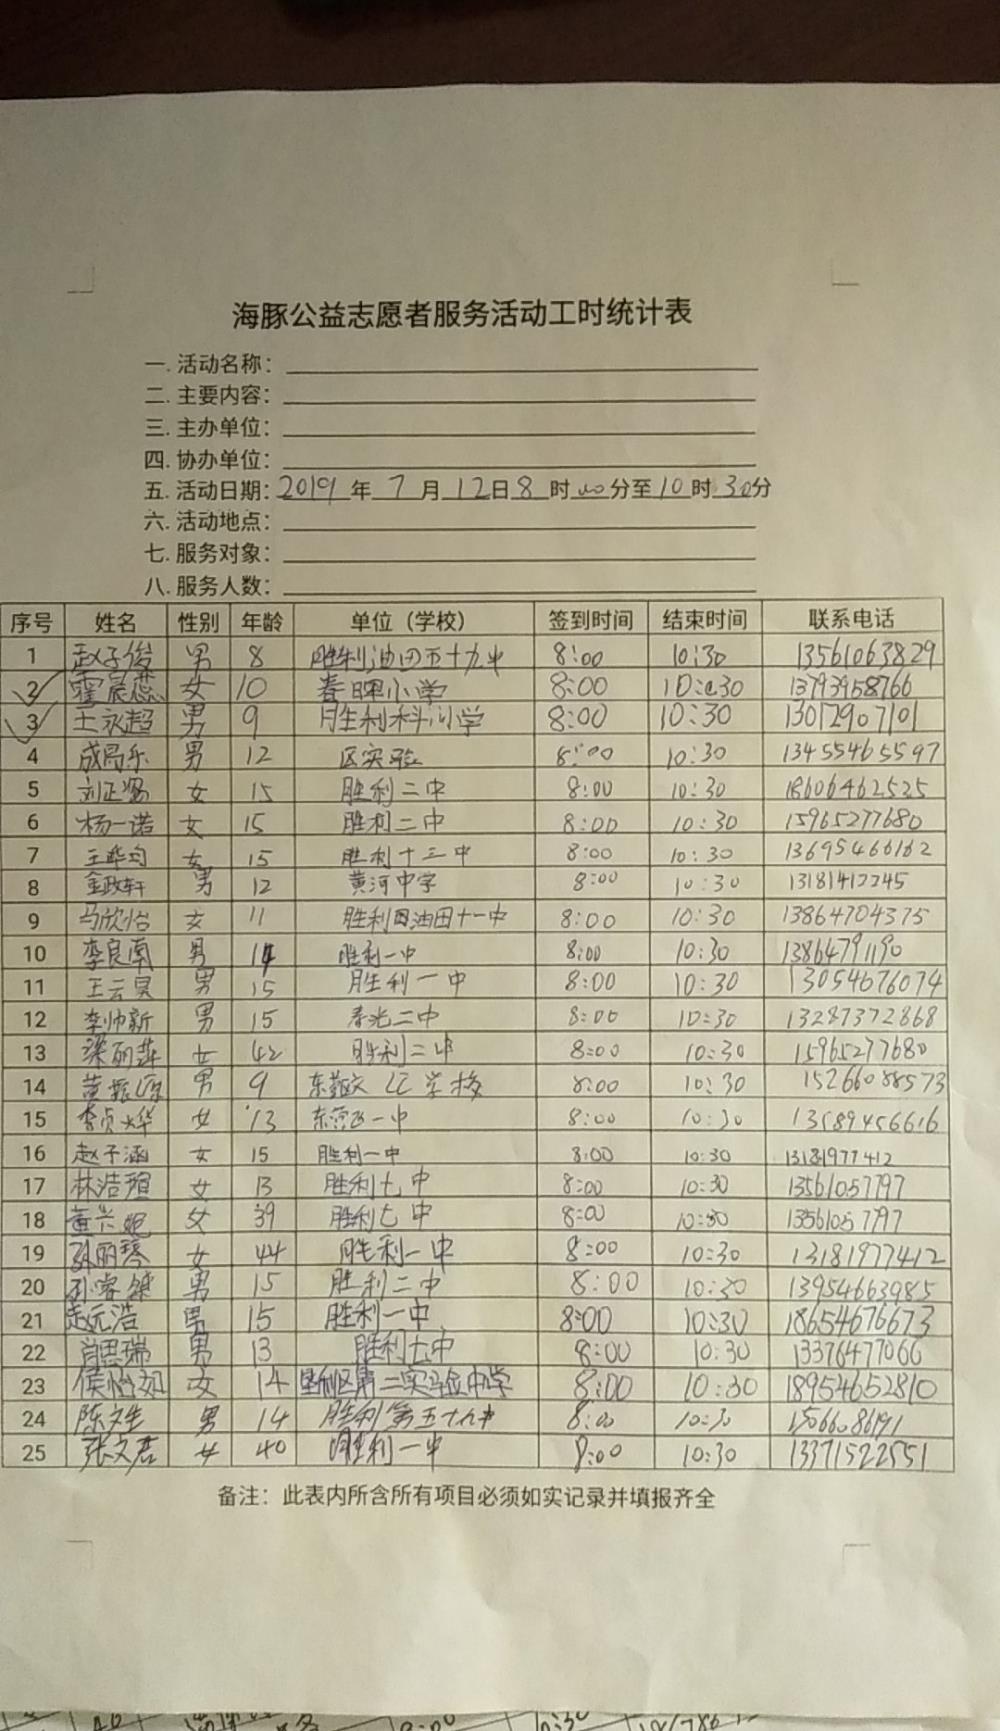 海豚公益志愿者服务活动工时统计表
一. 活动名称：
二. 主要内容：
三. 主办单位：
四. 协办单位：
五. 活动日期：2019 年 7 月 12 日 8 时 00 分至 10 时 30 分
六. 活动地点：
七. 服务对象：
八. 服务人数：
序号 姓名 性别 年龄 单位（学校） 签到时间 结束时间 联系电话
1 赵子俊 男 8 胜利油田五十九中 8:00 10:30 13561063829
2 霍晨蕊 女 10 春晖小学 8:00 10:30 13793958766
3 王永超 男 9 胜利科小学 8:00 10:30 13012907101
4 男 12 区实验 8:00 10:30 13455465597
5 女 15 胜利二中 8:00 10:30 18606462525
6 杨一诺 女 15 胜利二中 8:00 10:30 15965277680
7 女 15 胜利十三中 8:00 10:30 13695466162
8 金政轩 男 12 黄河中学 8:00 10:30 13181412245
9 马欣怡 女 11 胜利油田十一中 8:00 10:30 13864704375
10 李良南 男 14 胜利一中 8:00 10:30 13864791190
11 王云昊 男 15 胜利一中 8:00 10:30 13054676074
12 李帅新 男 15 春光二中 8:00 10:30 13287372868
13 梁丽萍 女 42 胜利二中 8:00 10:30 15965277680
14 黄振源 男 9 8:00 10:30 15266088573
15 女 13 一中 8:00 10:30 13589456616
16 赵子涵 女 15 胜利一中 8:00 10:30 13181977412
17 林浩瑄 女 13 胜利七中 8:00 10:30 13561057797
18 女 39 胜利七中 8:00 10:30 13561057797
19 孙丽琴 女 44 胜利一中 8:00 10:30 13181977412
20 孙睿 男 15 胜利二中 8:00 10:30 13954663985
21 赵元浩 男 15 胜利一中 8:00 10:30 18654676673
22 肖思瑞 男 13 胜利七中 8:00 10:30 13376477066
23 侯怡如 女 14 8:00 10:30 18954652810
24 陈文生 男 14 胜利第五十九中 8:00 10:30 15066086191
25 张文君 女 40 胜利一中 8:00 10:30 13371522551
备注：此表内所含所有项目必须如实记录并填报齐全